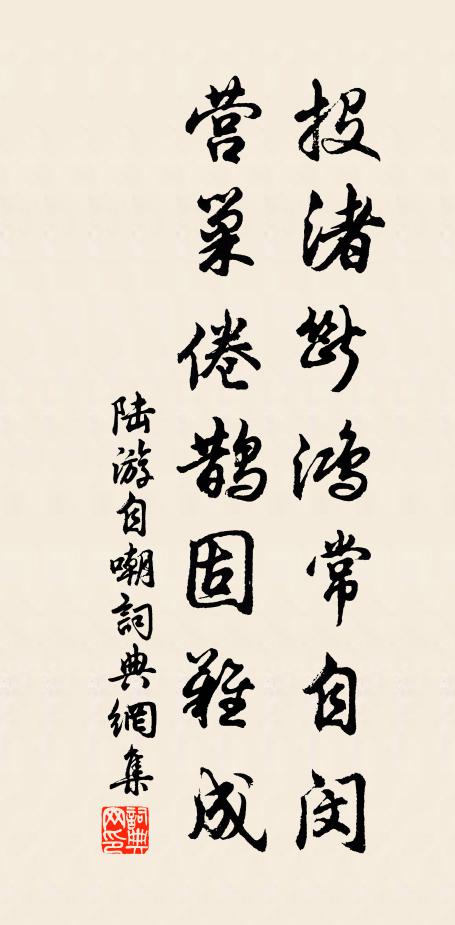 投渚断鸿常自闵
营巢倦鹊固难成
陆游自嘲詞典網集
詞典网印